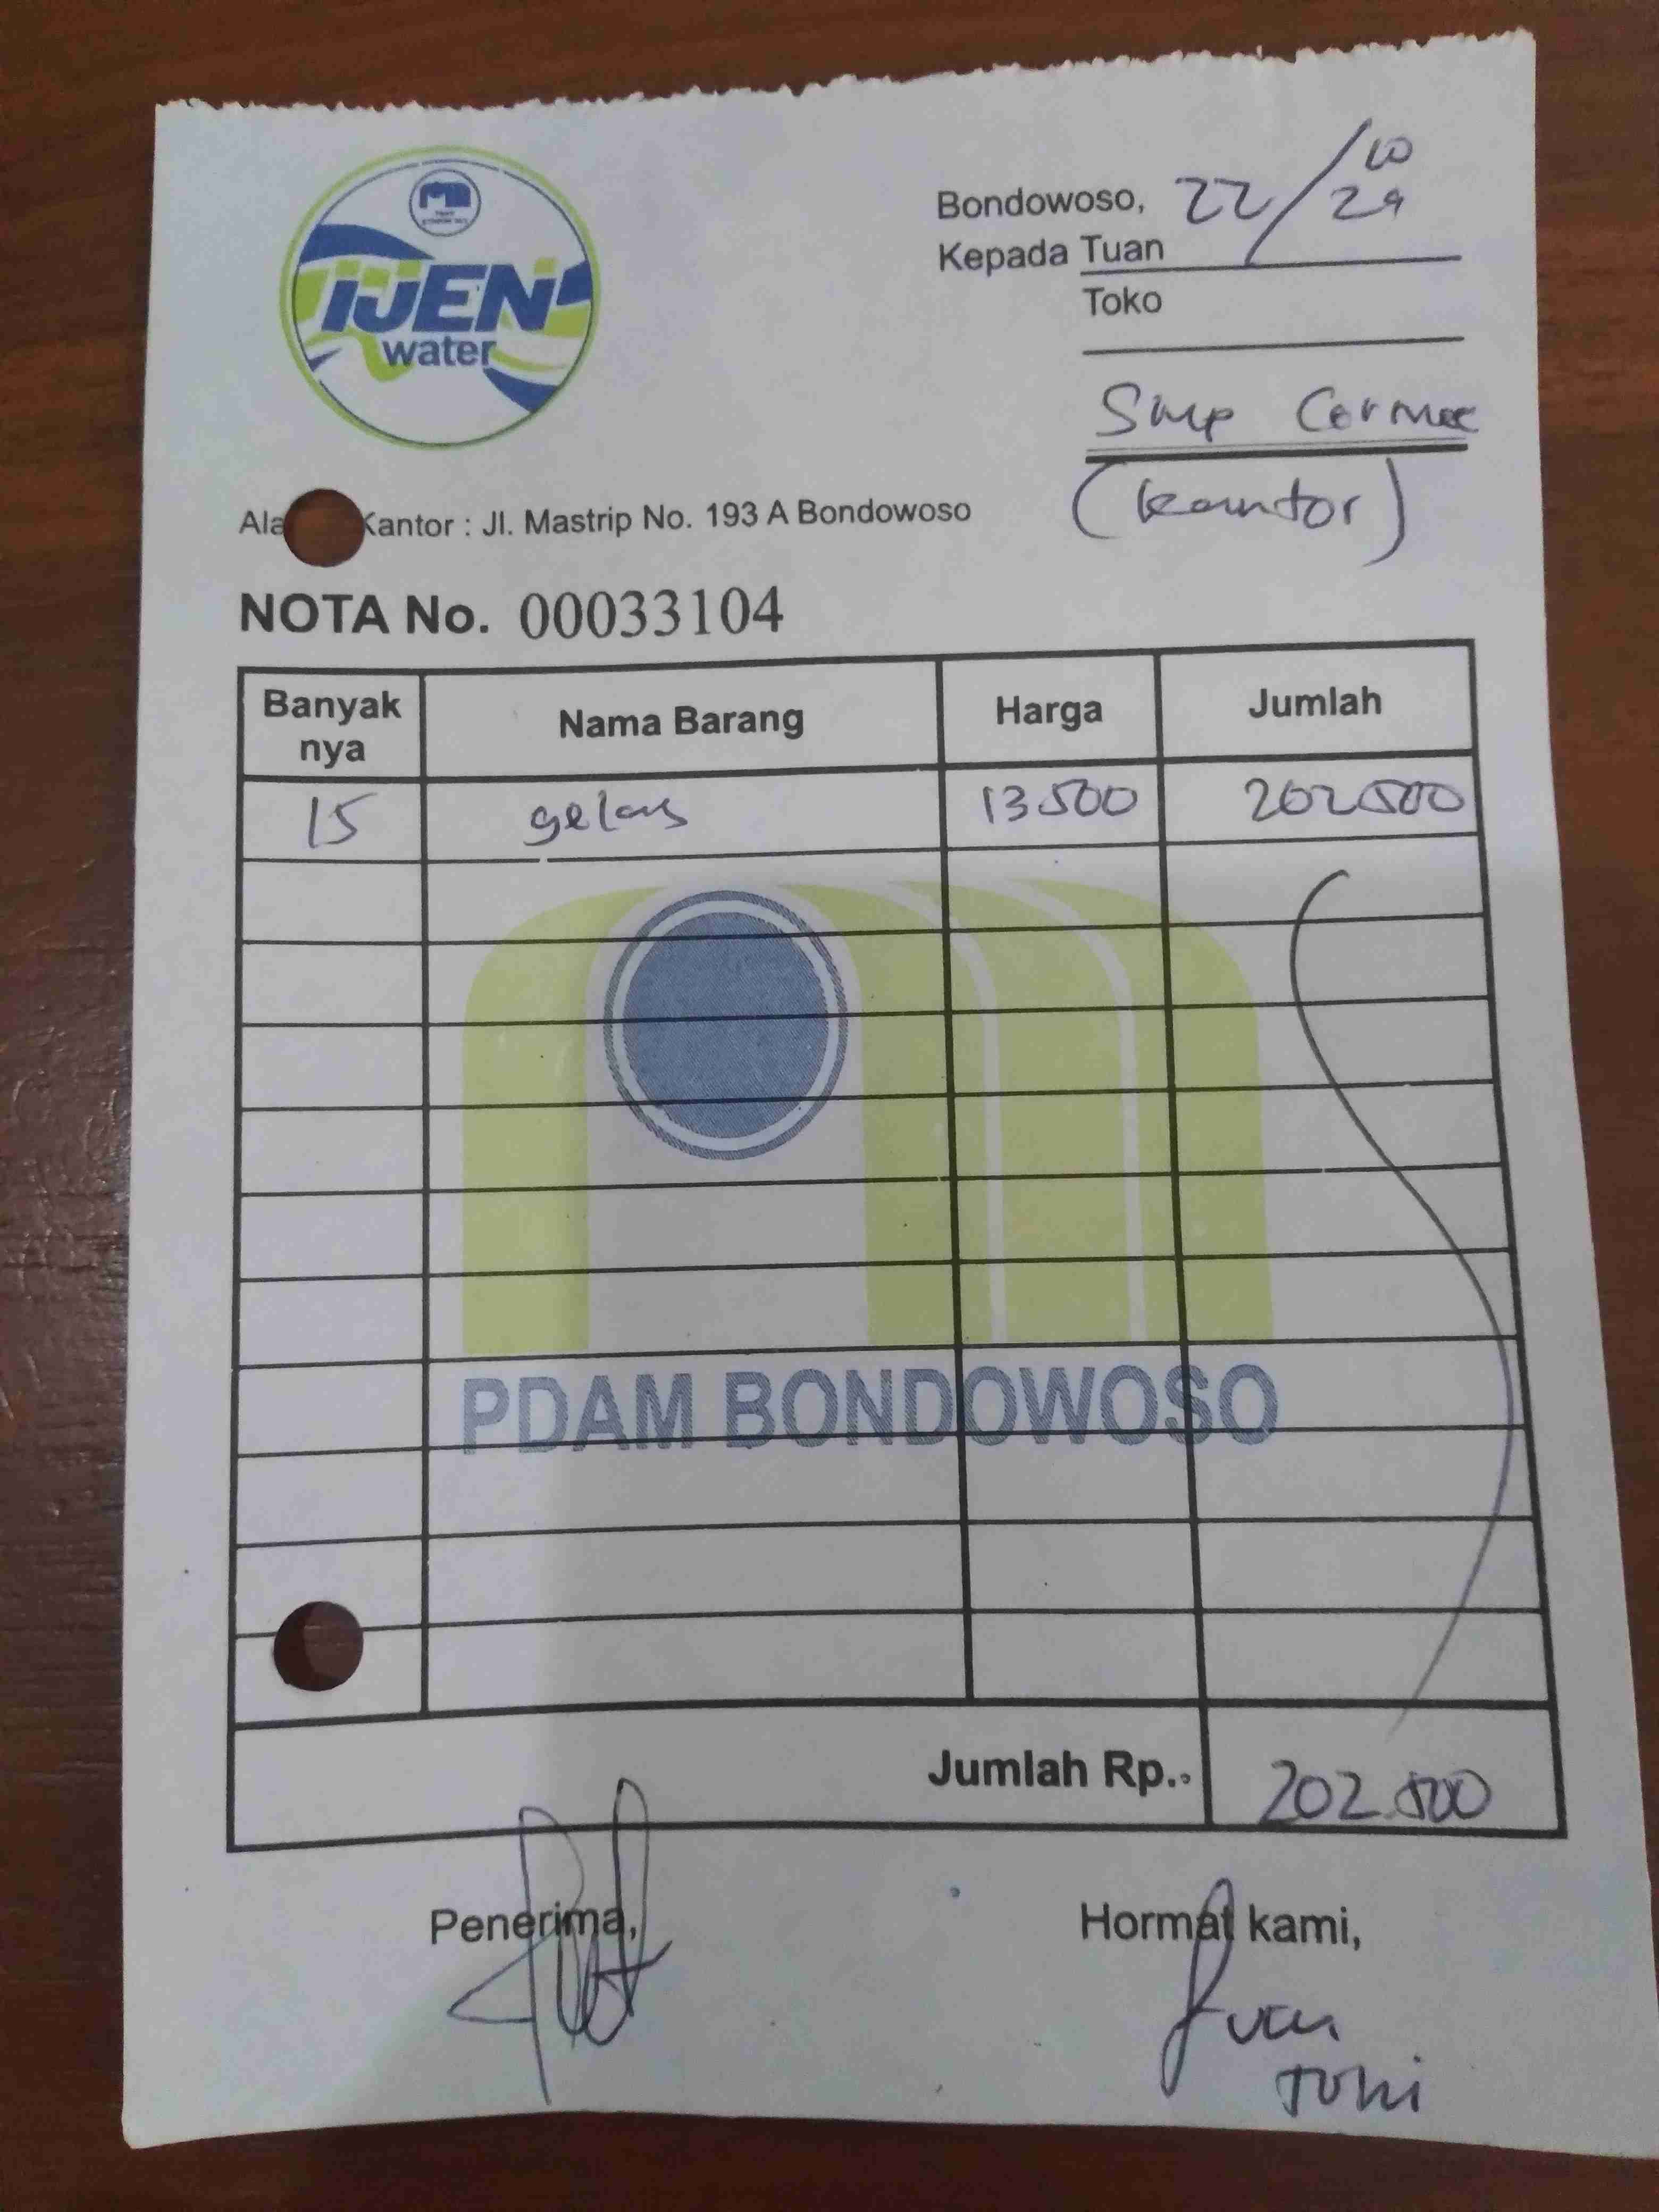 IJEN
water
Bondowoso, 22/10
24
Kepada Tuan
Toko
Smp Cermee
(kantor)
Kantor : Jl. Mastrip No. 193 A Bondowoso
NOTA No. 00033104
Banyak
nya
Nama Barang
Harga
Jumlah
15 gelas 13.500 202.500
PDAM BONDOWOSO
Jumlah Rp. 202.500
Penerima,
Hormat kami,